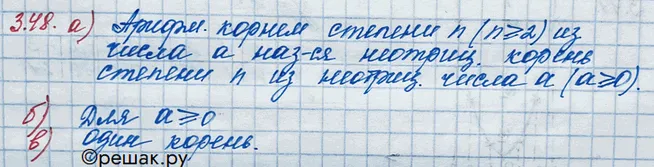 3.48. а) Арифм. корнем степени n (n≥2) из
числа а наз-ся неотриц. корень
степени n из неотриц. числа a (a≥0).
б) Для a≥0
в) один корень.
©решак.ру